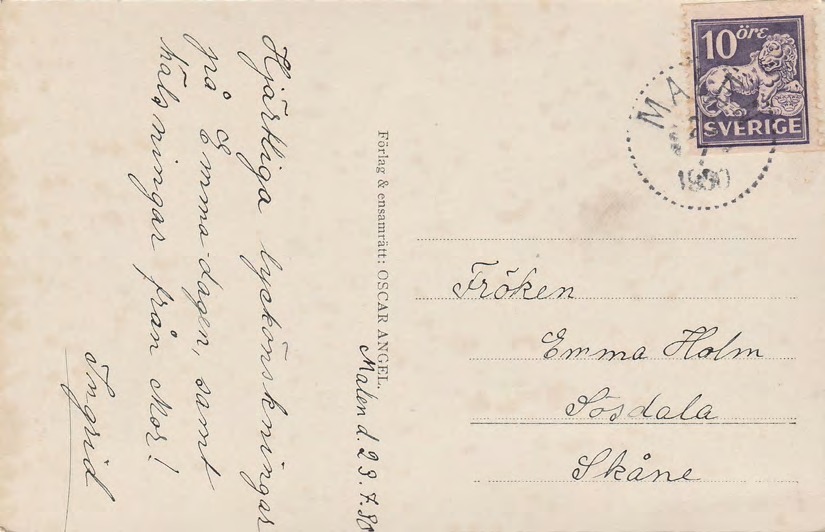 Hjärtliga lyckönskningar
på Emma-dagen, samt
hälsningar från Mor!
Ingrid
Förlag & ensamrätt: OSCAR ANGEL.
Malen d. 23.7.30
10 öre
SVERIGE
1930
Fröken
Emma Holm
Sösdala
Skåne